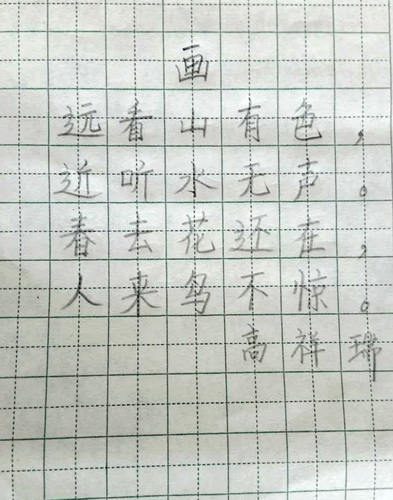 画
远看山有色，
近听水无声。
春去花还在，
人来鸟不惊。
高祥瑞